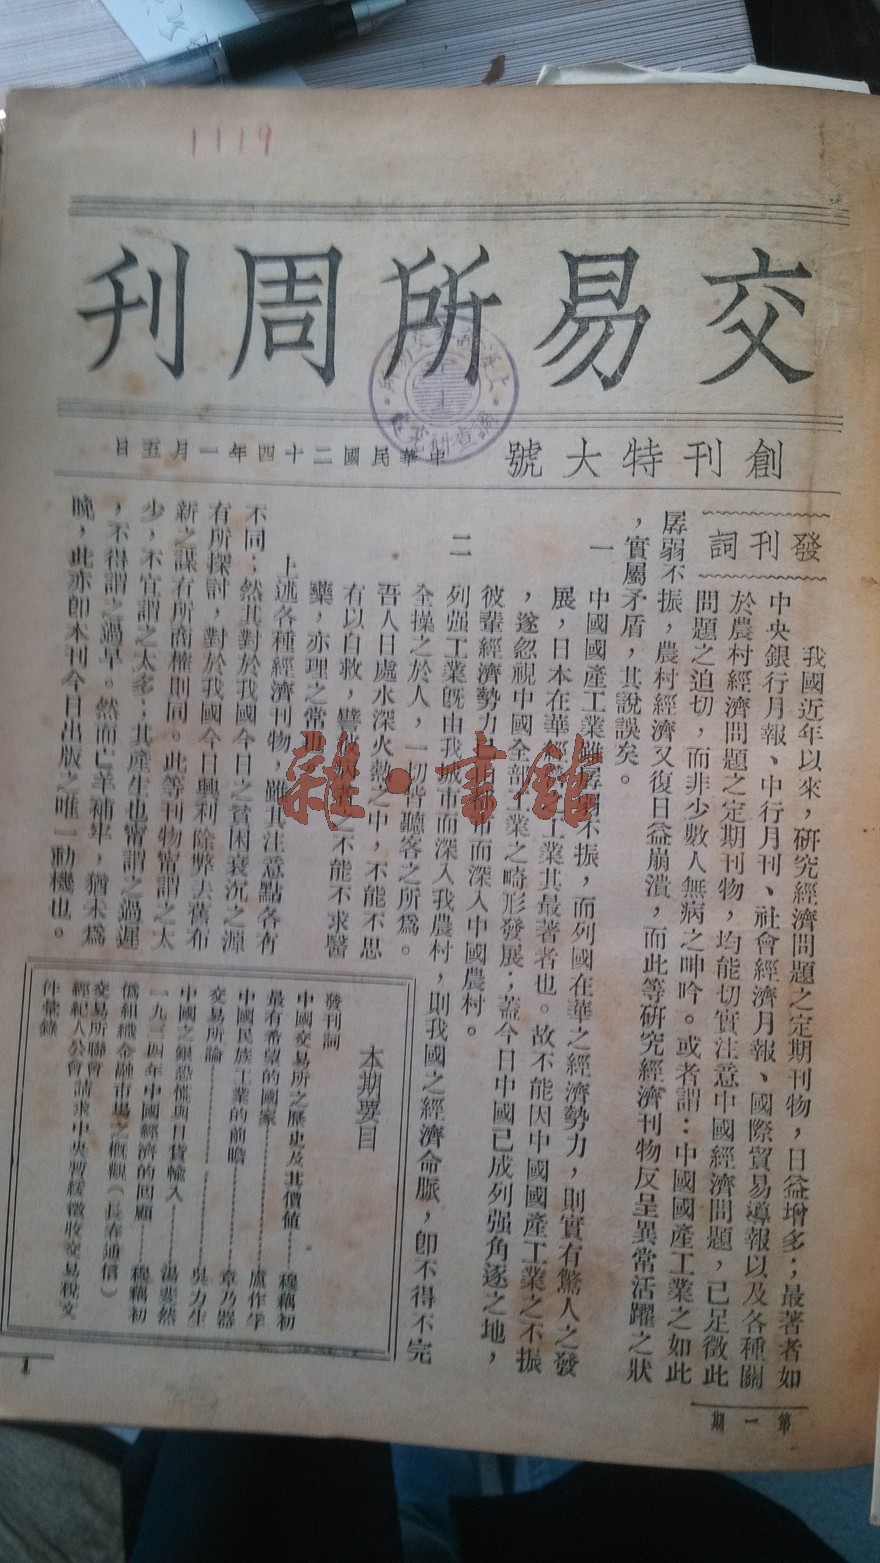 1119
交易所周刊
創刊特大號
中華民國二十四年一月五日
發刊詞
我國近年以來，研究經濟問題之定期刊物，日益增多；最著者如
中央銀行月報、中行月刊、社會經濟月報、國際貿易導報以及各種關
於農村經濟問題之定期刊物，均能切實注意中國經濟問題，已足徵此
問題之迫切，而非少數人無病之呻吟。或者謂：中國國產工業之如此
孱弱不振，農村經濟又復日益崩潰，而此等研究經濟刊物反呈異常活躍之狀
，實屬矛盾，其說誤矣。
一　中國國產工業雖孱弱不振，而列國在華之經濟勢力，則實有驚人之發
展，日本在華經 工業其最著者也。故不能因中國國產工業之不振
，遂忽視中國全部工業之畸形發展；蓋今日中國已成列强角逐之地，
彼輩經濟勢力 市而深入中國農村。
二　列强工業既由我城市而深入我農村，則我國之經濟命脈，卽不得不完
全操之於人，一切皆聽客之所爲。
吾人日處水深火熱之中，不能不思
有以自救，譬彼 之不能不求醫
藥，亦理之常
上述各種經濟刊物，雖其注意點各有
不同；然其對於我國今日之貧困衰沉之源
有所探討，對於我國今日興利除弊去舊布
新之謀有所商權則同。此等刊物甯謂之太
少，不宜謂之太多；其產生也甯謂之過遲
，不得謂之過早。然而亡羊補牢，猶未爲
晚，此亦卽本刊今日出版之唯一動機也。
本期要目
發刊詞
中國交易所之歷史及其價値——穆藕初
最有希望的國家——盧作孚
中國民族工業的前瞻——章乃器
交易所論——吳力生
中國之銀恐慌與日貨輸入——湯斐然
一九三四年中國經濟的回顧——穆藕初
僞組織金融市場之概觀（長春通信）
交易所聯會
經紀人公會 請求中央暫緩徵收交易稅文
件彙錄
第一期
1
雜·書館